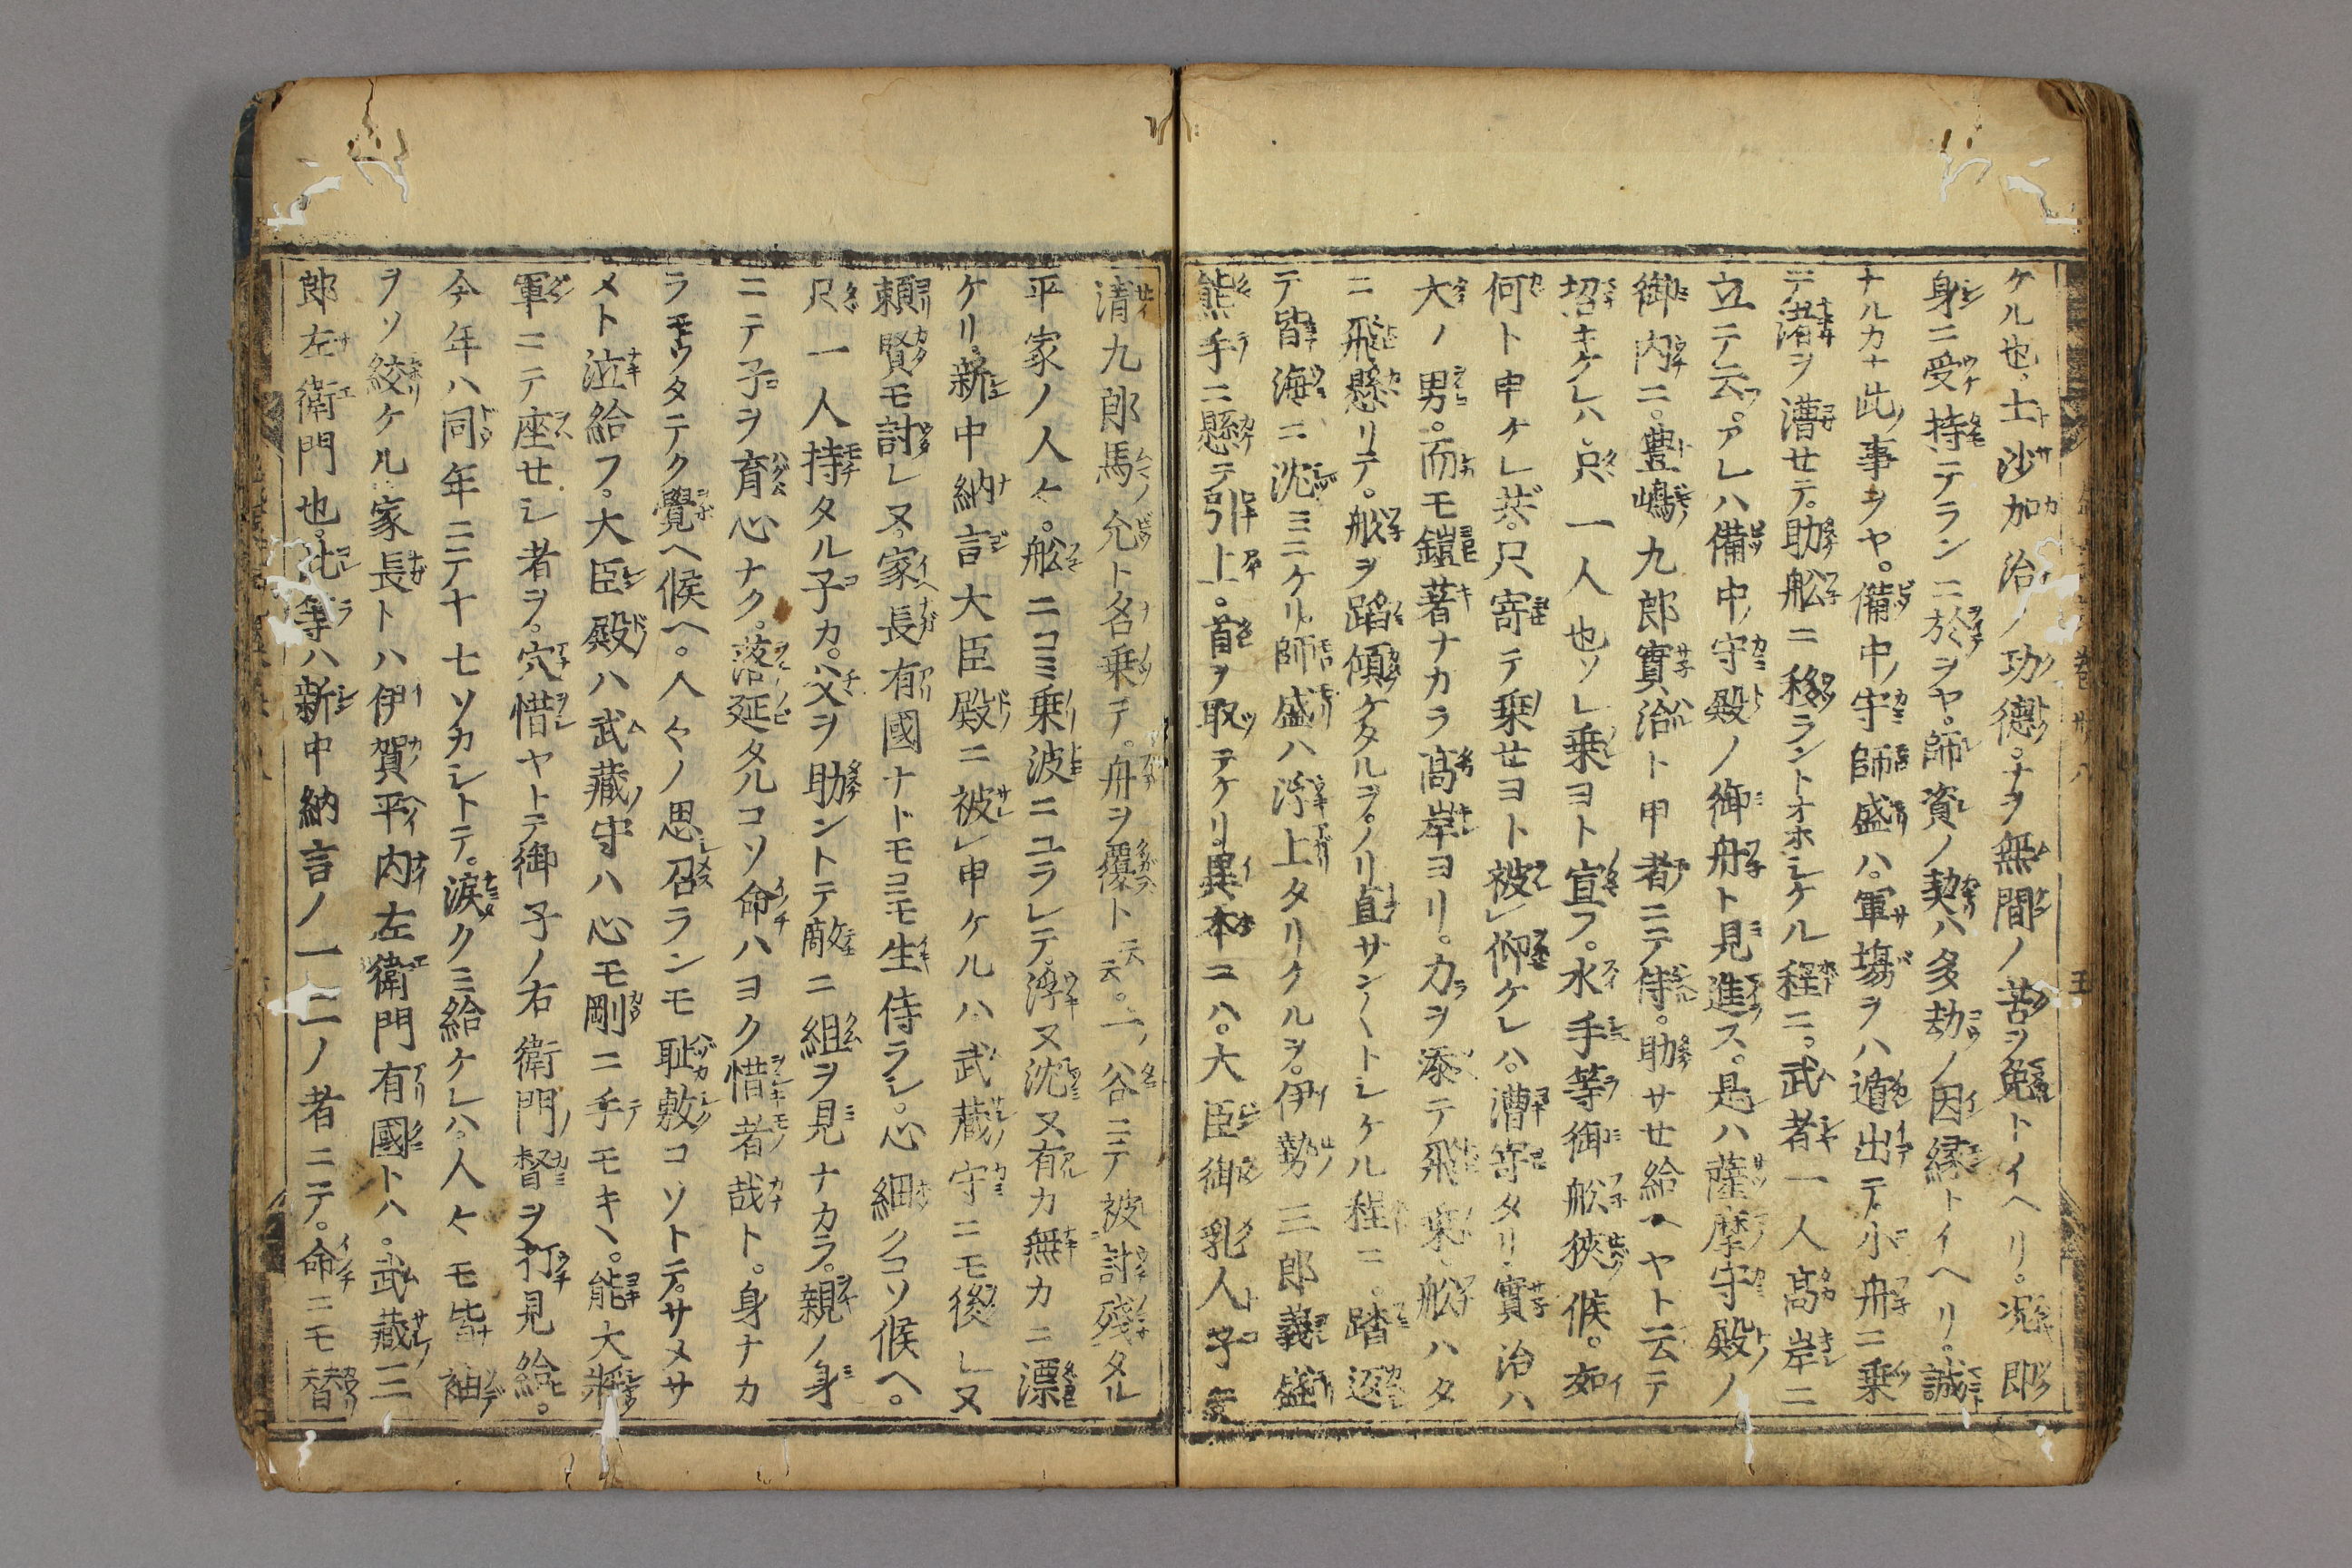 ケル也。土沙加治ノ功德。ナヲ無間ノ苦ヲ免トイヘリ。况即
身ニ受持テランニ於ヲヤ。師資ノ契ハ多劫ノ因縁トイヘリ。誠
ナルカナ此事ヲヤ。備中守師盛ハ。軍塲ヲハ遁出テ。小舟ニ乗
テ渚ヲ漕セテ。助舩ニ移ラントオホシケル程ニ。武者一人髙岸ニ
立テ云。アレハ備中守殿ノ御舟ト見進ス。是ハ薩摩守殿ノ
御内ニ。豊嶋九郎實治ト申者ニテ侍。助サセ給ヘヤト云テ
招キケレハ。只一人也ソレ乗ヨト宣フ。水手等御舩狹候。如
何ト申ケレ共。只寄テ乗セヨト被仰ケレハ。漕寄タリ。實治ハ
大ノ男。而モ鎧著ナカラ髙岸ヨリ。力ヲ添テ飛乗。舩ハタ
ニ飛懸リテ。舩ヲ蹈傾ケタルヲ。ノリ直サン〱トシケル程ニ。踏返
テ皆海ニ沈ミニケリ。師盛ハ浮上タリクルヲ。伊勢三郎義盛
熊手ニ懸テ引上。首ヲ取テケリ。異本ニハ。大臣御乳人子
清九郎馬ノ允ト名乗テ。舟ヲ覆ト云云。一ノ谷ニテ被討殘タル
平家ノ人々。舩ニコミ乗波ニユラレテ。浮又沈又有カ無カニ漂
ケリ。新中納言大臣殿ニ被申ケルハ武藏守ニモ後レ又
頼賢モ討レ又。家長有國ナドモヨモ生侍ラシ。心細クコソ候ヘ。
只一人持タル子カ。父ヲ助ントテ敵ニ組ヲ見ナカラ。親ノ身
ニテ子ヲ育心ナク。落延タルコソ命ハヨク惜者哉ト。身ナカ
ラモウタテク覺ヘ候ヘ。人々ノ思召ランモ耻敷コソトテ。サメサ
メト泣給フ。大臣殿ハ武藏守ハ心モ剛ニ手モキヽ。能大將
軍ニテ座セシ者ヲ。穴惜ヤトテ御子ノ右衛門督ヲ打見給。
今年ハ同年ニテ十七ソカシトテ。淚クミ給ケレハ。人々モ皆袖
ヲソ絞ケル。家長トハ伊賀平内左衛門有國トハ。武藏三
郎左衛門也。此等ハ新中納言ノ一二ノ者ニテ。命ニモ替